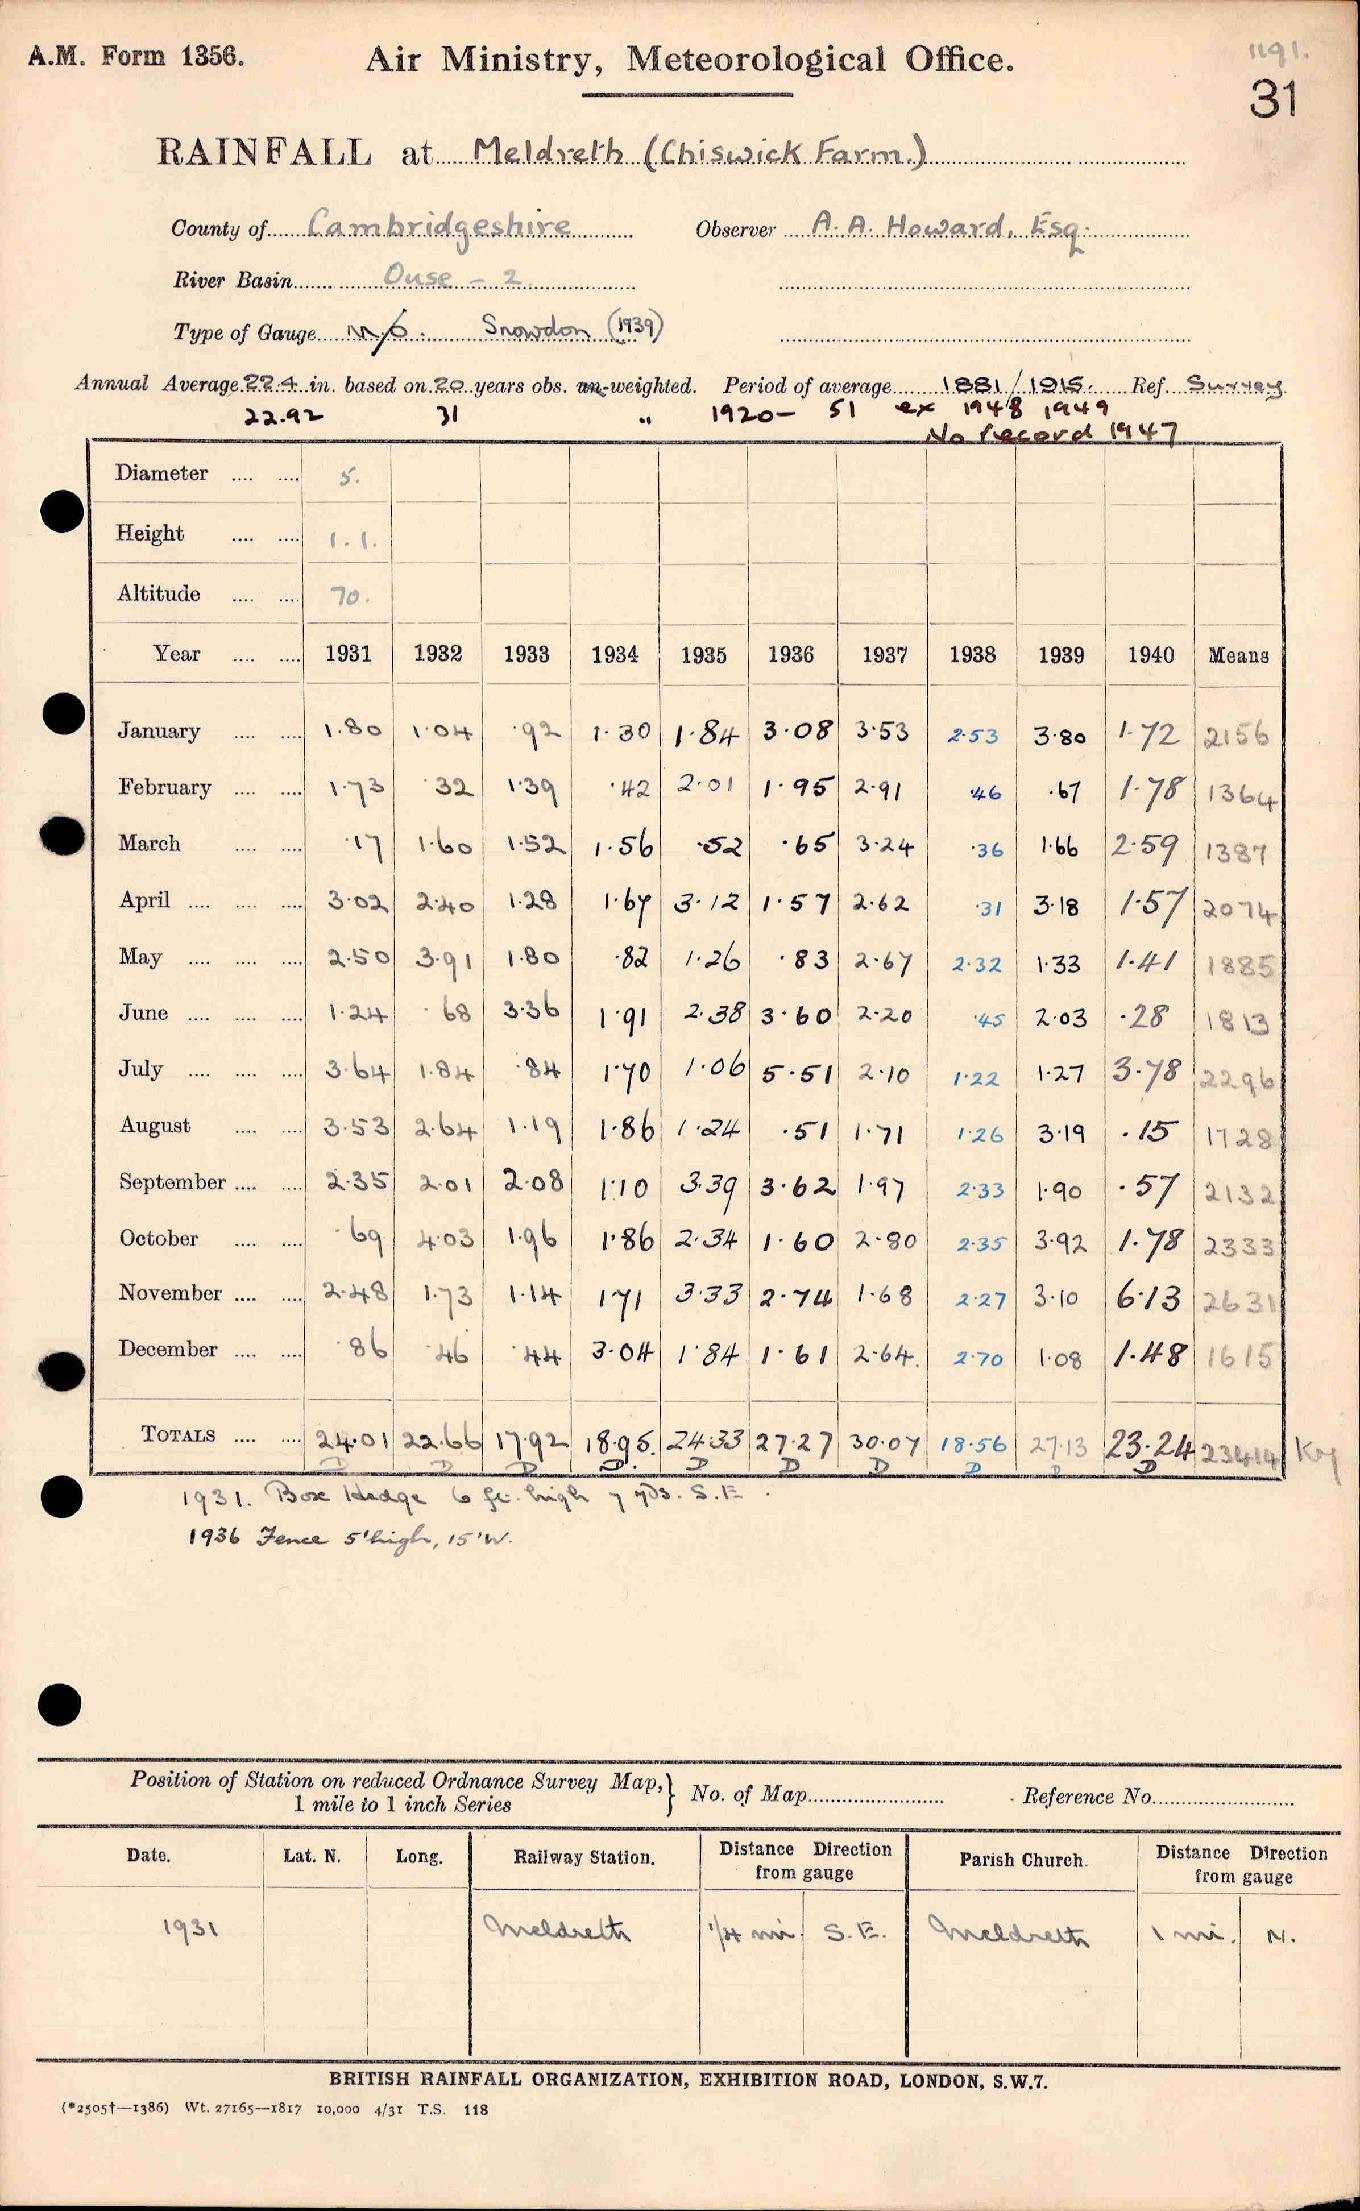 A.M. Form 1356. Air Ministry, Meteorological Office. 1191.
31
RAINFALL at Meldreth (Chiswick Farm.)
County of Cambridgeshire Observer A. A. Howard, Esq.
River Basin Ouse - 2
Type of Gauge M/O. Snowdon (1939)
Annual Average 22.4 in. based on 20 years obs. un-weighted. Period of average 1881/1915. Ref. Survey
22.92 31 " 1920- 51 ex 1948 1949
No record 1947
Diameter .... .... 5.
Height .... .... 1.1.
Altitude .... .... 70.
Year .... .... 1931 1932 1933 1934 1935 1936 1937 1938 1939 1940 Means
January .... .... 1.80 1.04 .92 1.30 1.84 3.08 3.53 2.53 3.80 1.72 2156
February .... .... 1.73 .32 1.39 .42 2.01 1.95 2.91 .46 .67 1.78 1364
March .... .... .17 1.60 1.52 1.56 .52 .65 3.24 .36 1.66 2.59 1387
April .... .... .... 3.02 2.40 1.28 1.67 3.12 1.57 2.62 .31 3.18 1.57 2074
May .... .... .... 2.50 3.91 1.80 .82 1.26 .83 2.67 2.32 1.33 1.41 1885
June .... .... .... 1.24 .68 3.36 1.91 2.38 3.60 2.20 .45 2.03 .28 1813
July .... .... .... 3.64 1.84 .84 1.70 1.06 5.51 2.10 1.22 1.27 3.78 2296
August .... .... 3.53 2.64 1.19 1.86 1.24 .51 1.71 1.26 3.19 .15 1728
September .... .... 2.35 2.01 2.08 1.10 3.39 3.62 1.97 2.33 1.90 .57 2132
October .... .... .69 4.03 1.96 1.86 2.34 1.60 2.80 2.35 3.92 1.78 2333
November .... .... 2.48 1.73 1.14 1.71 3.33 2.74 1.68 2.27 3.10 6.13 2631
December .... .... .86 .46 .44 3.04 1.84 1.61 2.64. 2.70 1.08 1.48 1615
TOTALS .... .... 24.01 22.66 17.92 18.95. 24.33 27.27 30.07 18.56 27.13 23.24 23414
D D D D. D D D D D D
1931. Box Hedge 6 ft. high 7 yds. S.E.
1936 Fence 5' high, 15' W.
Position of Station on reduced Ordnance Survey Map,} No. of Map Reference No.
1 mile to 1 inch Series
Date. Lat. N. Long. Railway Station. Distance Direction from gauge Parish Church. Distance Direction from gauge
1931 Meldreth 1/4 mi. S.E. Meldreth 1 mi. N.
BRITISH RAINFALL ORGANIZATION, EXHIBITION ROAD, LONDON, S.W.7.
(*2505†—1386) Wt. 27165—1817 10,000 4/31 T.S. 118